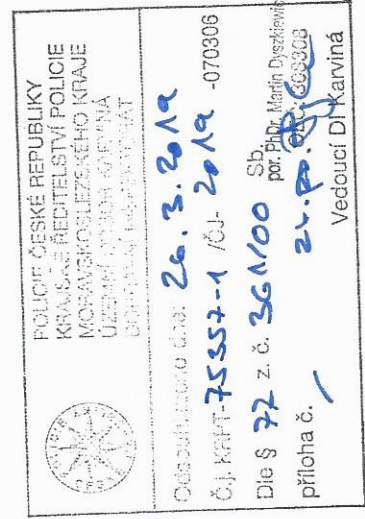 POLICIE ČESKÉ REPUBLIKY
KRAJSKÉ ŘEDITELSTVÍ POLICIE
MORAVSKOSLEZSKÉHO KRAJE
ÚZEMNÍ ODBOR KARVINÁ
DOPRAVNÍ INSPEKTORÁT
dne: 26.3.2019
Č.j. KRPT-75357-1 /ČJ- 2019 -070306
Dle § 77 z. č. 361/00 Sb.
por. PhDr. Martin Dyszkiewicz
příloha č. /
Vedoucí DI Karviná